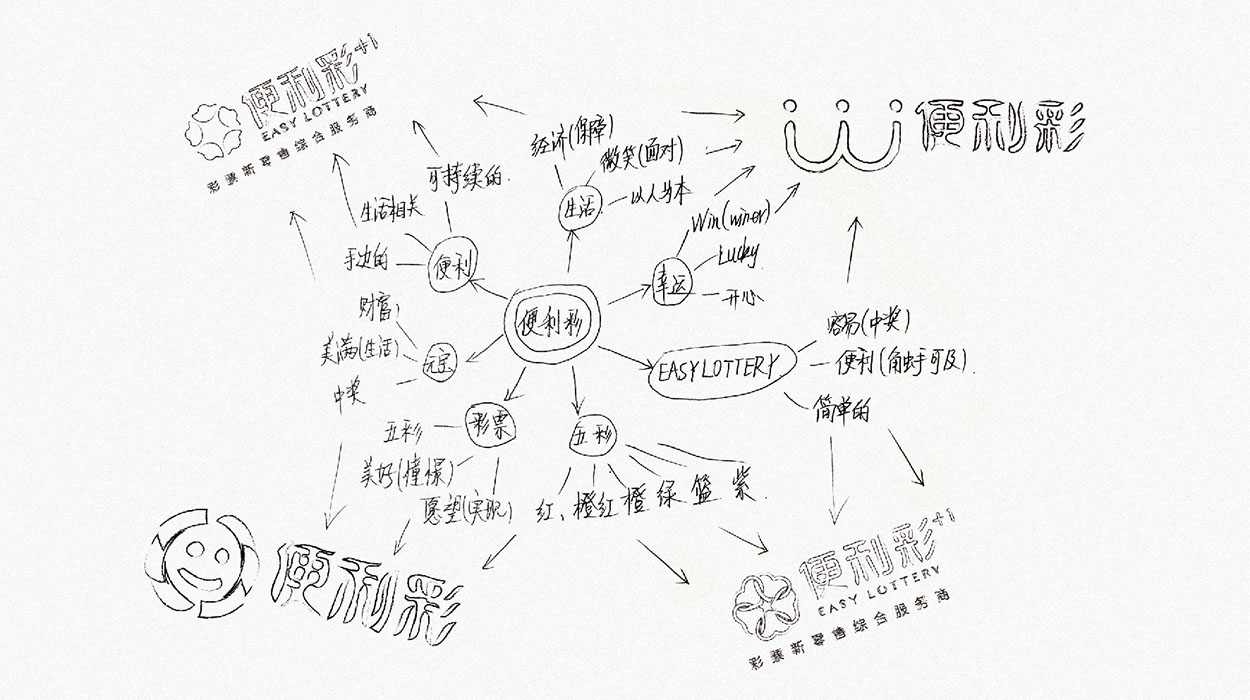 便利彩+1
EASY LOTTERY
彩票新零售综合服务商
便利彩
经济(保障)
微笑(面对)
以人为本
生活
可持续的.
生活相关
手边的
便利
Win(winer)
Lucky
开心
幸运
便利彩
财富,
美满(生活)
中奖
元宝
EASY LOTTERY
容易(中奖)
便利(触手可及).
简单的
彩票
五彩
美好(憧憬)
愿望(实现)
五彩
红、橙红 橙 绿 篮 紫.
便利彩
便利彩+1
EASY LOTTERY
彩票新零售综合服务商